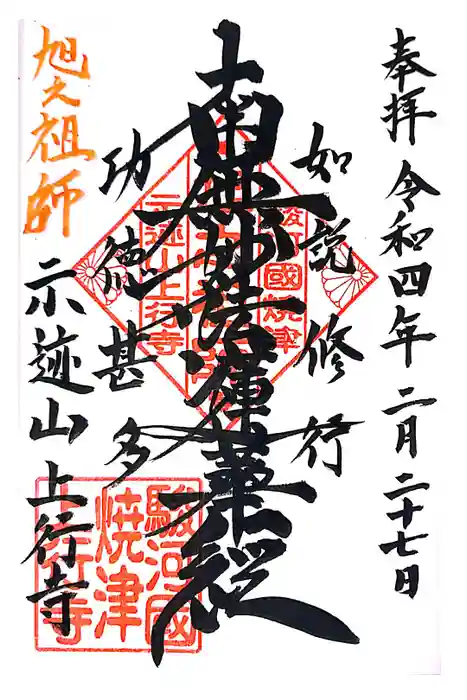 奉拝 令和四年二月二十七日
如説修行
南無妙法蓮華経
功徳甚多
旭之祖師
示迹山上行寺
駿河國
焼津
上行寺
駿國焼津
示迹山上行寺